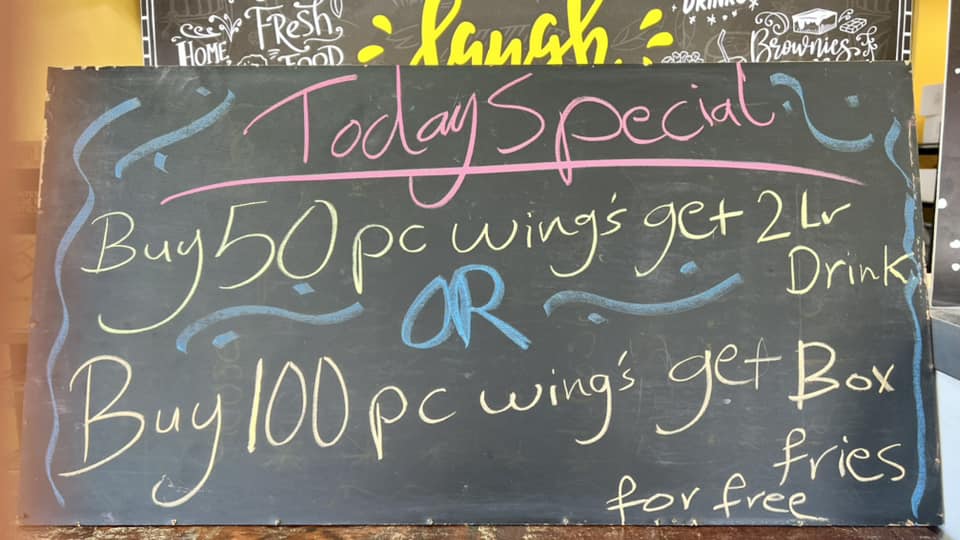 HOME
FRESH
FOOD
laugh
DRINKS
Brownies
Today Special
Buy 50 pc wing's get 2 Lr
Drink
OR
Buy 100 pc wing's get Box
fries
for free